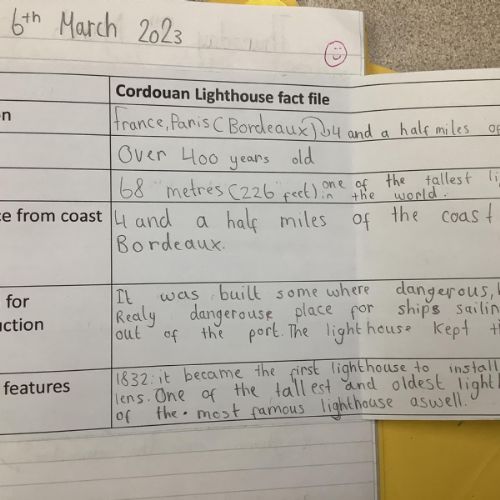 6th March 2023
Cordouan Lighthouse fact file
France, Paris (Bordeaux) 4 and a half miles of
Over 400 years old
68 metres (226 feet). one of the tallest
in the world.
from coast
4 and a half miles of the coast
Bordeaux.
for
It was built some where dangerous,
Realy dangerouse place for ships
out of the port. The lighthouse kept
features
1832: it became the first lighthouse to install
lens. One of the tallest and oldest
of the most famous lighthouse aswell.